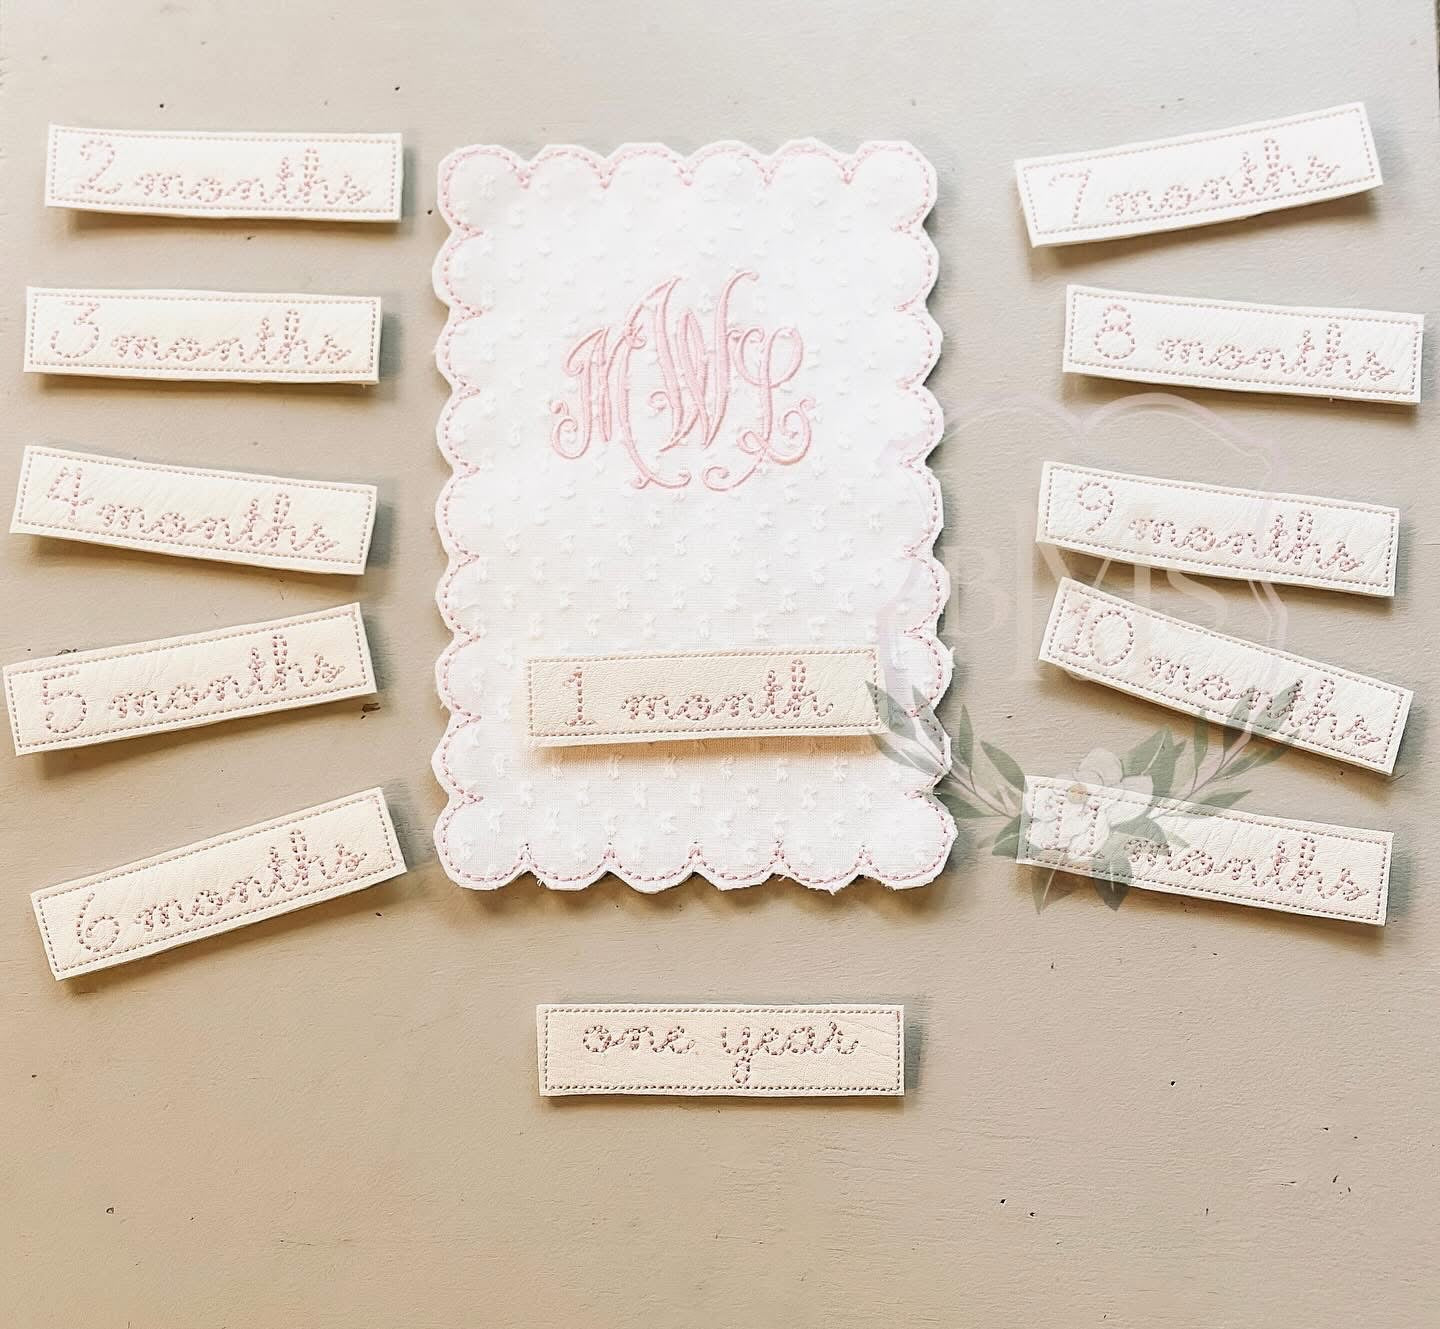 2 months
3 months
4 months
5 months
6 months
MWL
1 month
7 months
8 months
9 months
10 months
11 months
one year